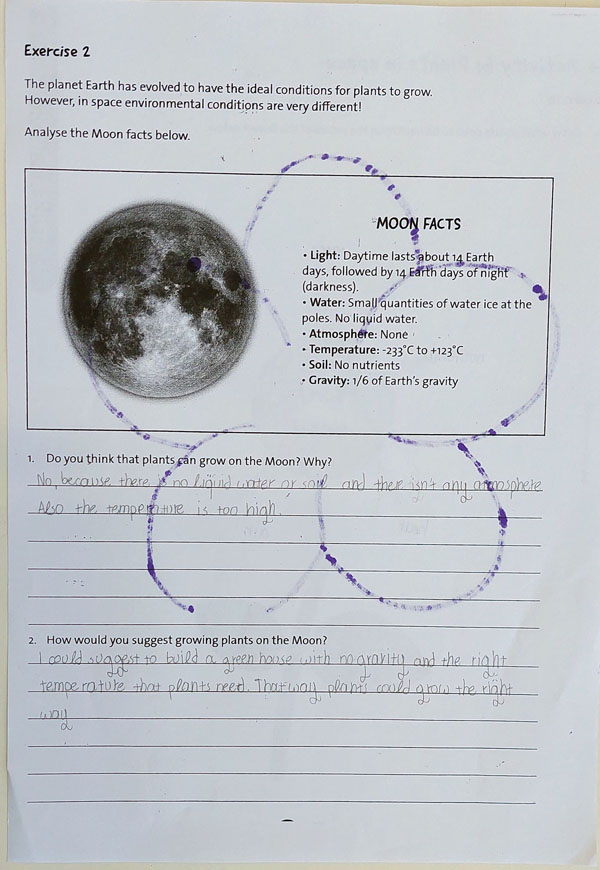 Exercise 2
The planet Earth has evolved to have the ideal conditions for plants to grow.
However, in space environmental conditions are very different!
Analyse the Moon facts below.
MOON FACTS
• Light: Daytime lasts about 14 Earth
days, followed by 14 Earth days of night
(darkness).
• Water: Small quantities of water ice at the
poles. No liquid water.
• Atmosphere: None
• Temperature: -233°C to +123°C
• Soil: No nutrients
• Gravity: 1/6 of Earth's gravity
1. Do you think that plants can grow on the Moon? Why?
No, because there is no liquid water or soil and there isn't any atmosphere
Also the temperature is too high.
2. How would you suggest growing plants on the Moon?
I could suggest to build a green house with no gravity and the right
temperature that plants need. That way plants could grow the right
way